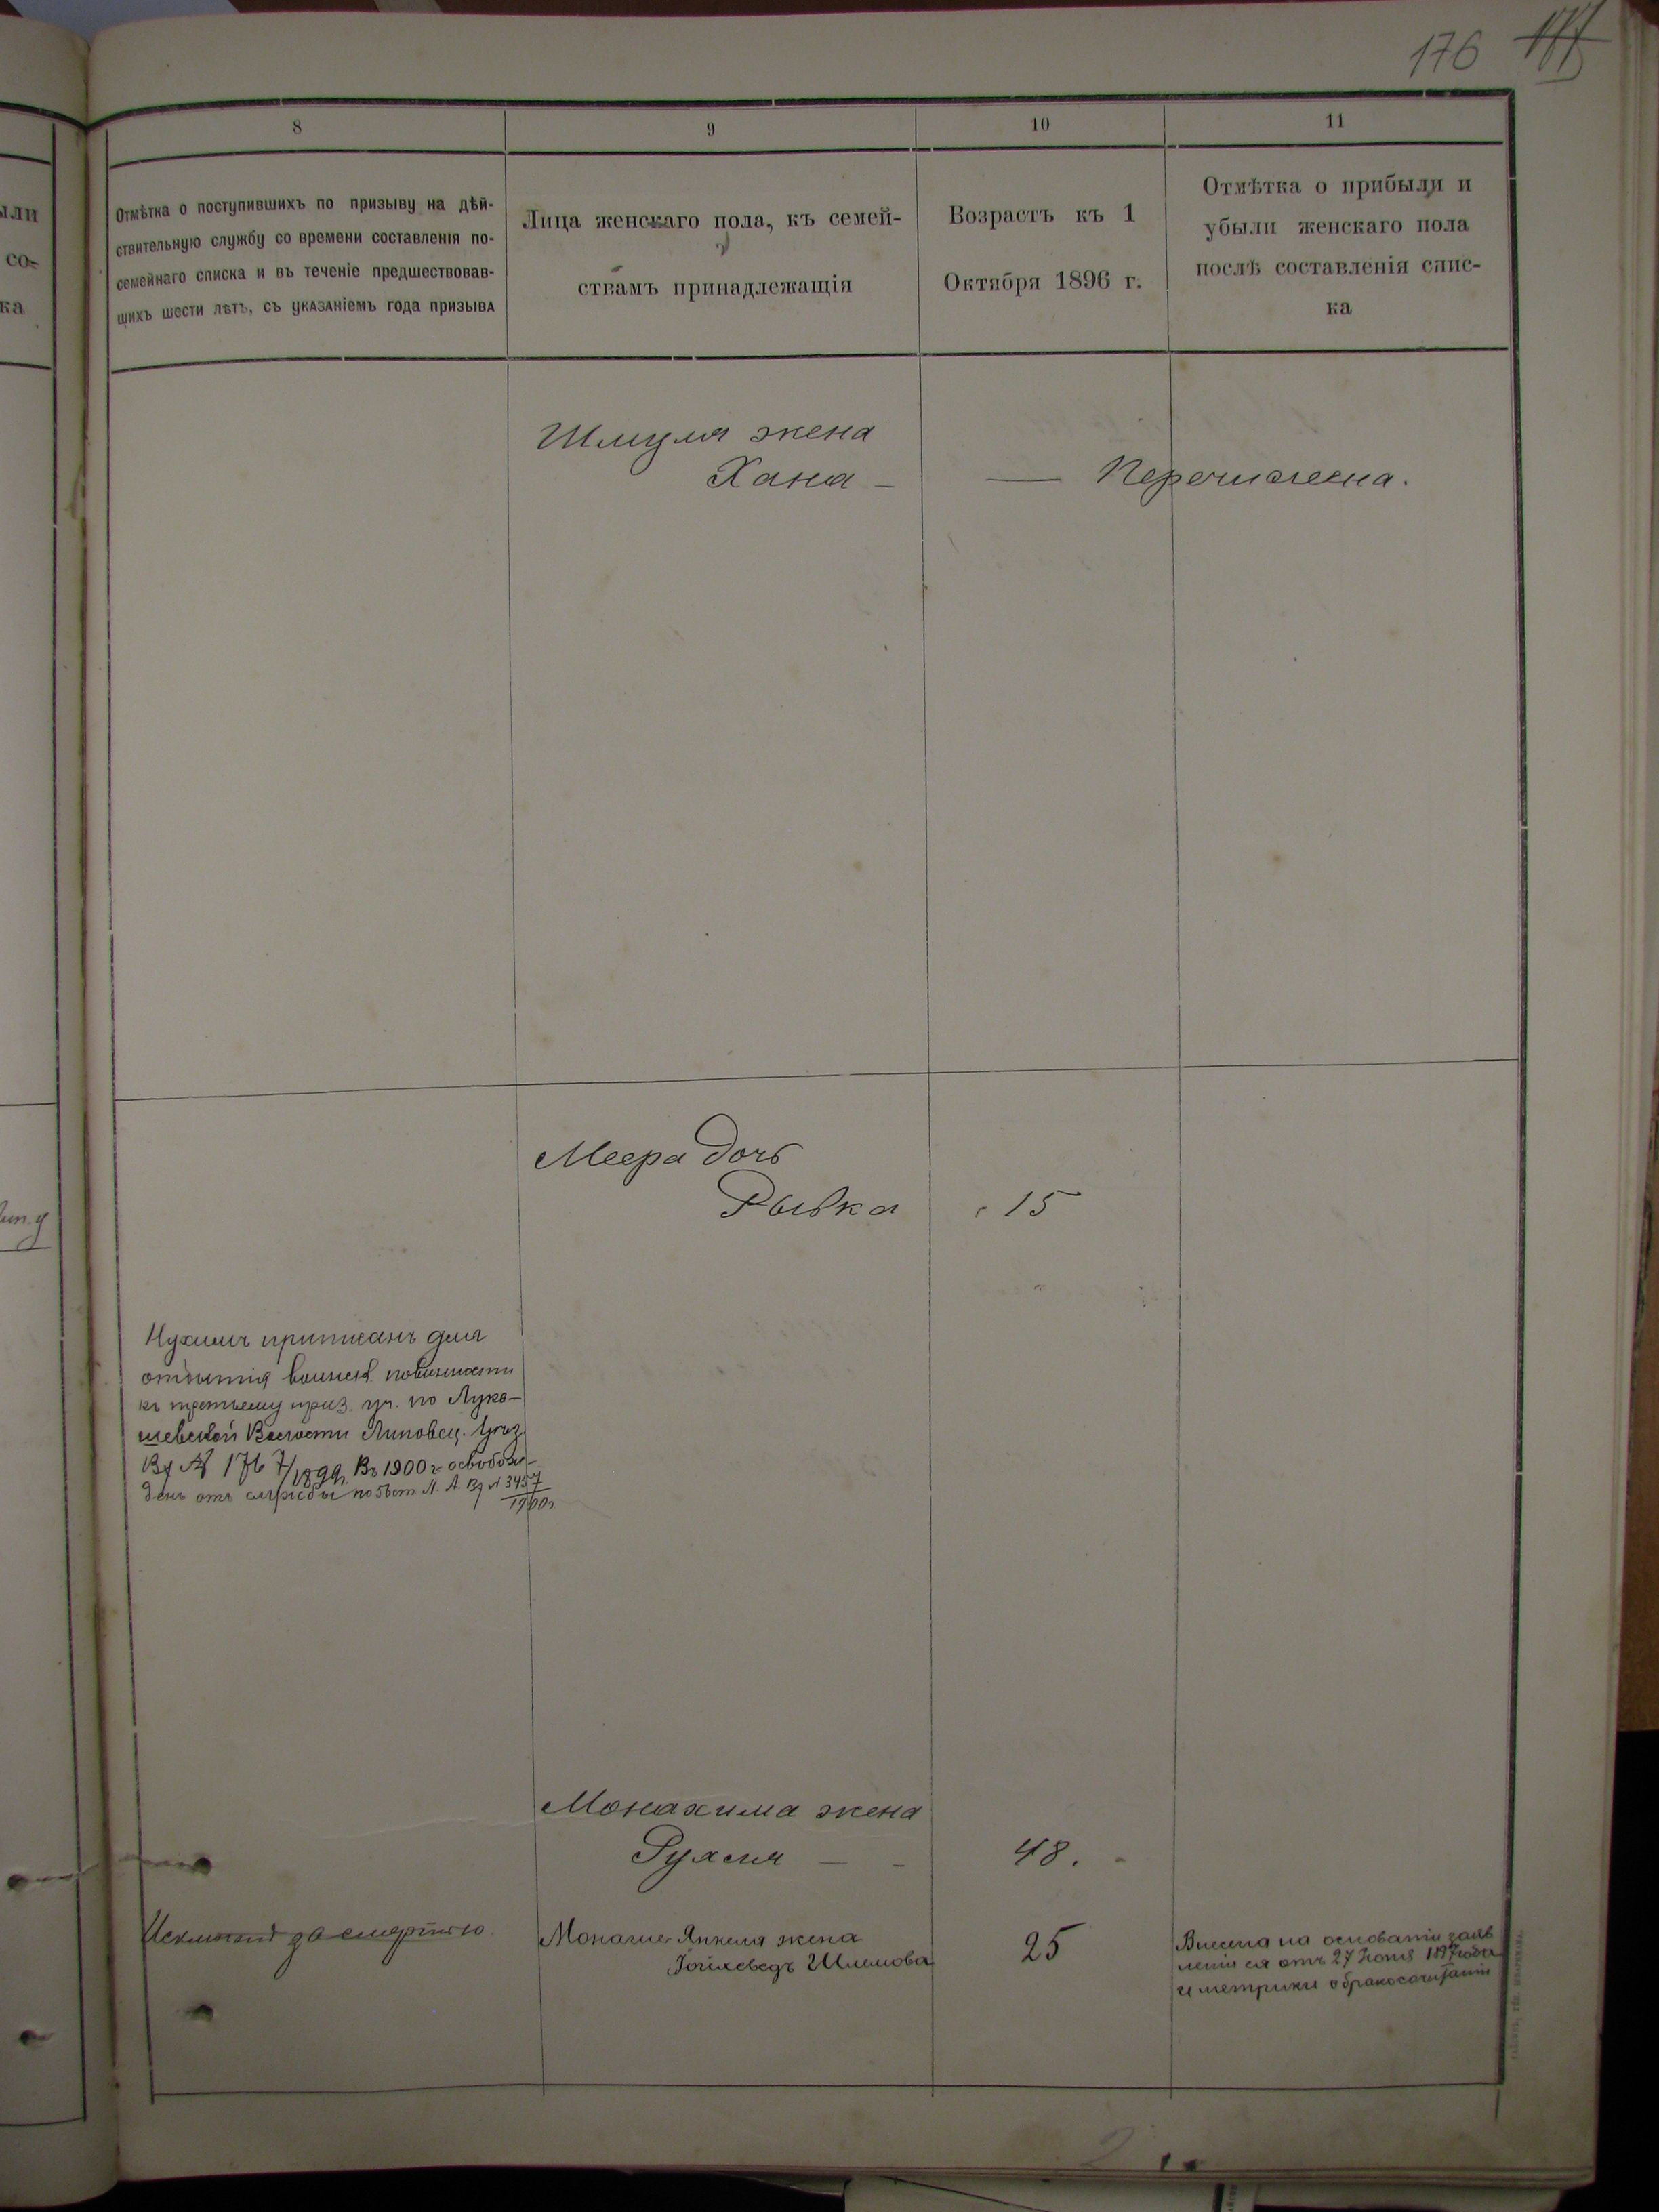 176
8
9
10
11
Отмѣтка о поступившихъ по призыву на дѣй-
ствительную службу со времени составленія по-
семейнаго списка и въ теченіе предшествовав-
шихъ шести лѣтъ, съ указаніемъ года призыва
Лица женскаго пола, къ семей-
ствамъ принадлежащія
Возрастъ къ 1
Октября 1896 г.
Отмѣтка о прибыли и
убыли женскаго пола
послѣ составленія спис-
ка
Шмуля жена
Хана — — Перечислена.
Меера дочь
Рывка 15
Нухимъ приписанъ для
отбытія воинск. повинности
къ третьему приз. уч. по Лука-
шевской Волости Липовец. Уѣз.
Вх № 176 7/1899. Въ 1900 г освобож-
денъ отъ службы по 3457
1900г.
Монахима жена
Рухля — - 48.
Исключенъ за смертью.
Янкеля жена
Шлемова
25
Внесена на основаніи заяв
ленія ея отъ 27 1897 года
и метрики о бракосочитаніи
ыли
со-
ка